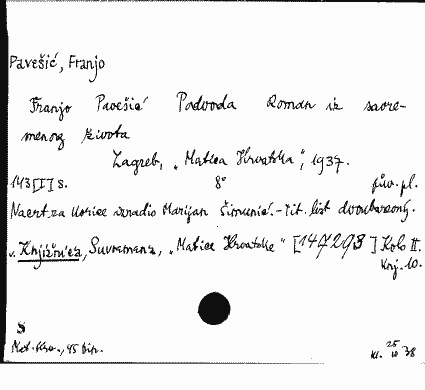 Pavešić, Franjo
Franjo Pavešić Podvoda Roman iz savre-
menog života
Zagreb, „Matica Hrvatska", 1937.
143 [I] s. 8° pův. pl.
Nacrt za korice izradio Marijan Šimunić. - Tit. list dvoubarevný.
v. Knjižnica, Suvremena, „Matice Hrvatske" [147293] Kolo II.
Knj. 10.
S
38